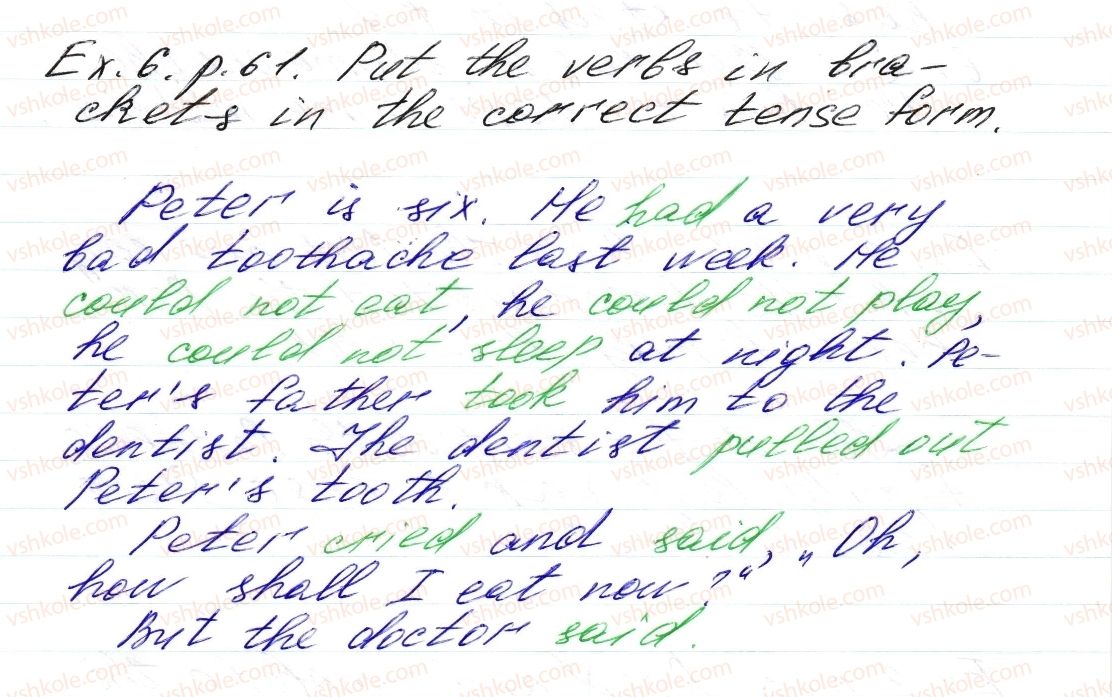 Ex. 6. p. 61. Put the verbs in bra-
ckets in the correct tense form.
Peter is six. He had a very
bad toothache last week. He
could not eat, he could not play,
he could not sleep at night. Pe-
ter's father took him to the
dentist. The dentist pulled out
Peter's tooth.
Peter cried and said, „Oh,
how shall I eat now?"
But the doctor said.
vshkole.com